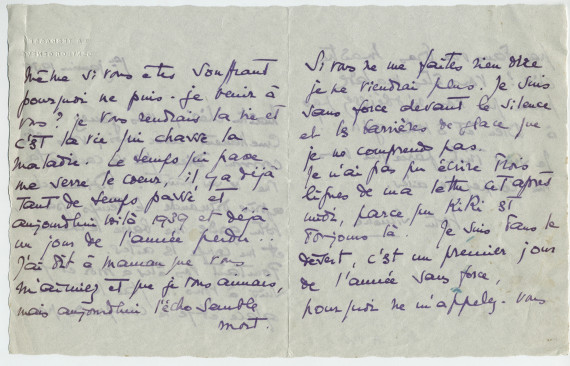 même si vous êtes souffrant
pourquoi ne puis-je venir à
vous ? je vous rendrais la vie et
c'est la vie qui chasse la
maladie. Le temps qui passe
me serre le coeur, il y a déjà
tant de temps passé et
aujourd'hui voilà 1939 et déjà
un jour de l'année perdu...
J'ai dit à maman que vous
m'aimiez et que je vous aimais,
mais aujourd'hui l'écho semble
mort.
Si vous ne me faites rien dire
je ne viendrai plus. Je suis
sans force devant le silence
et les barrières de glace que
je ne comprends pas.
Je n'ai pas pu écrire trois
lignes de ma lettre cet après
midi, parce que Kiki est
toujours là. Je suis dans le
désert, c'est un premier jour
de l'année sans force,
pourquoi ne m'appelez-vous